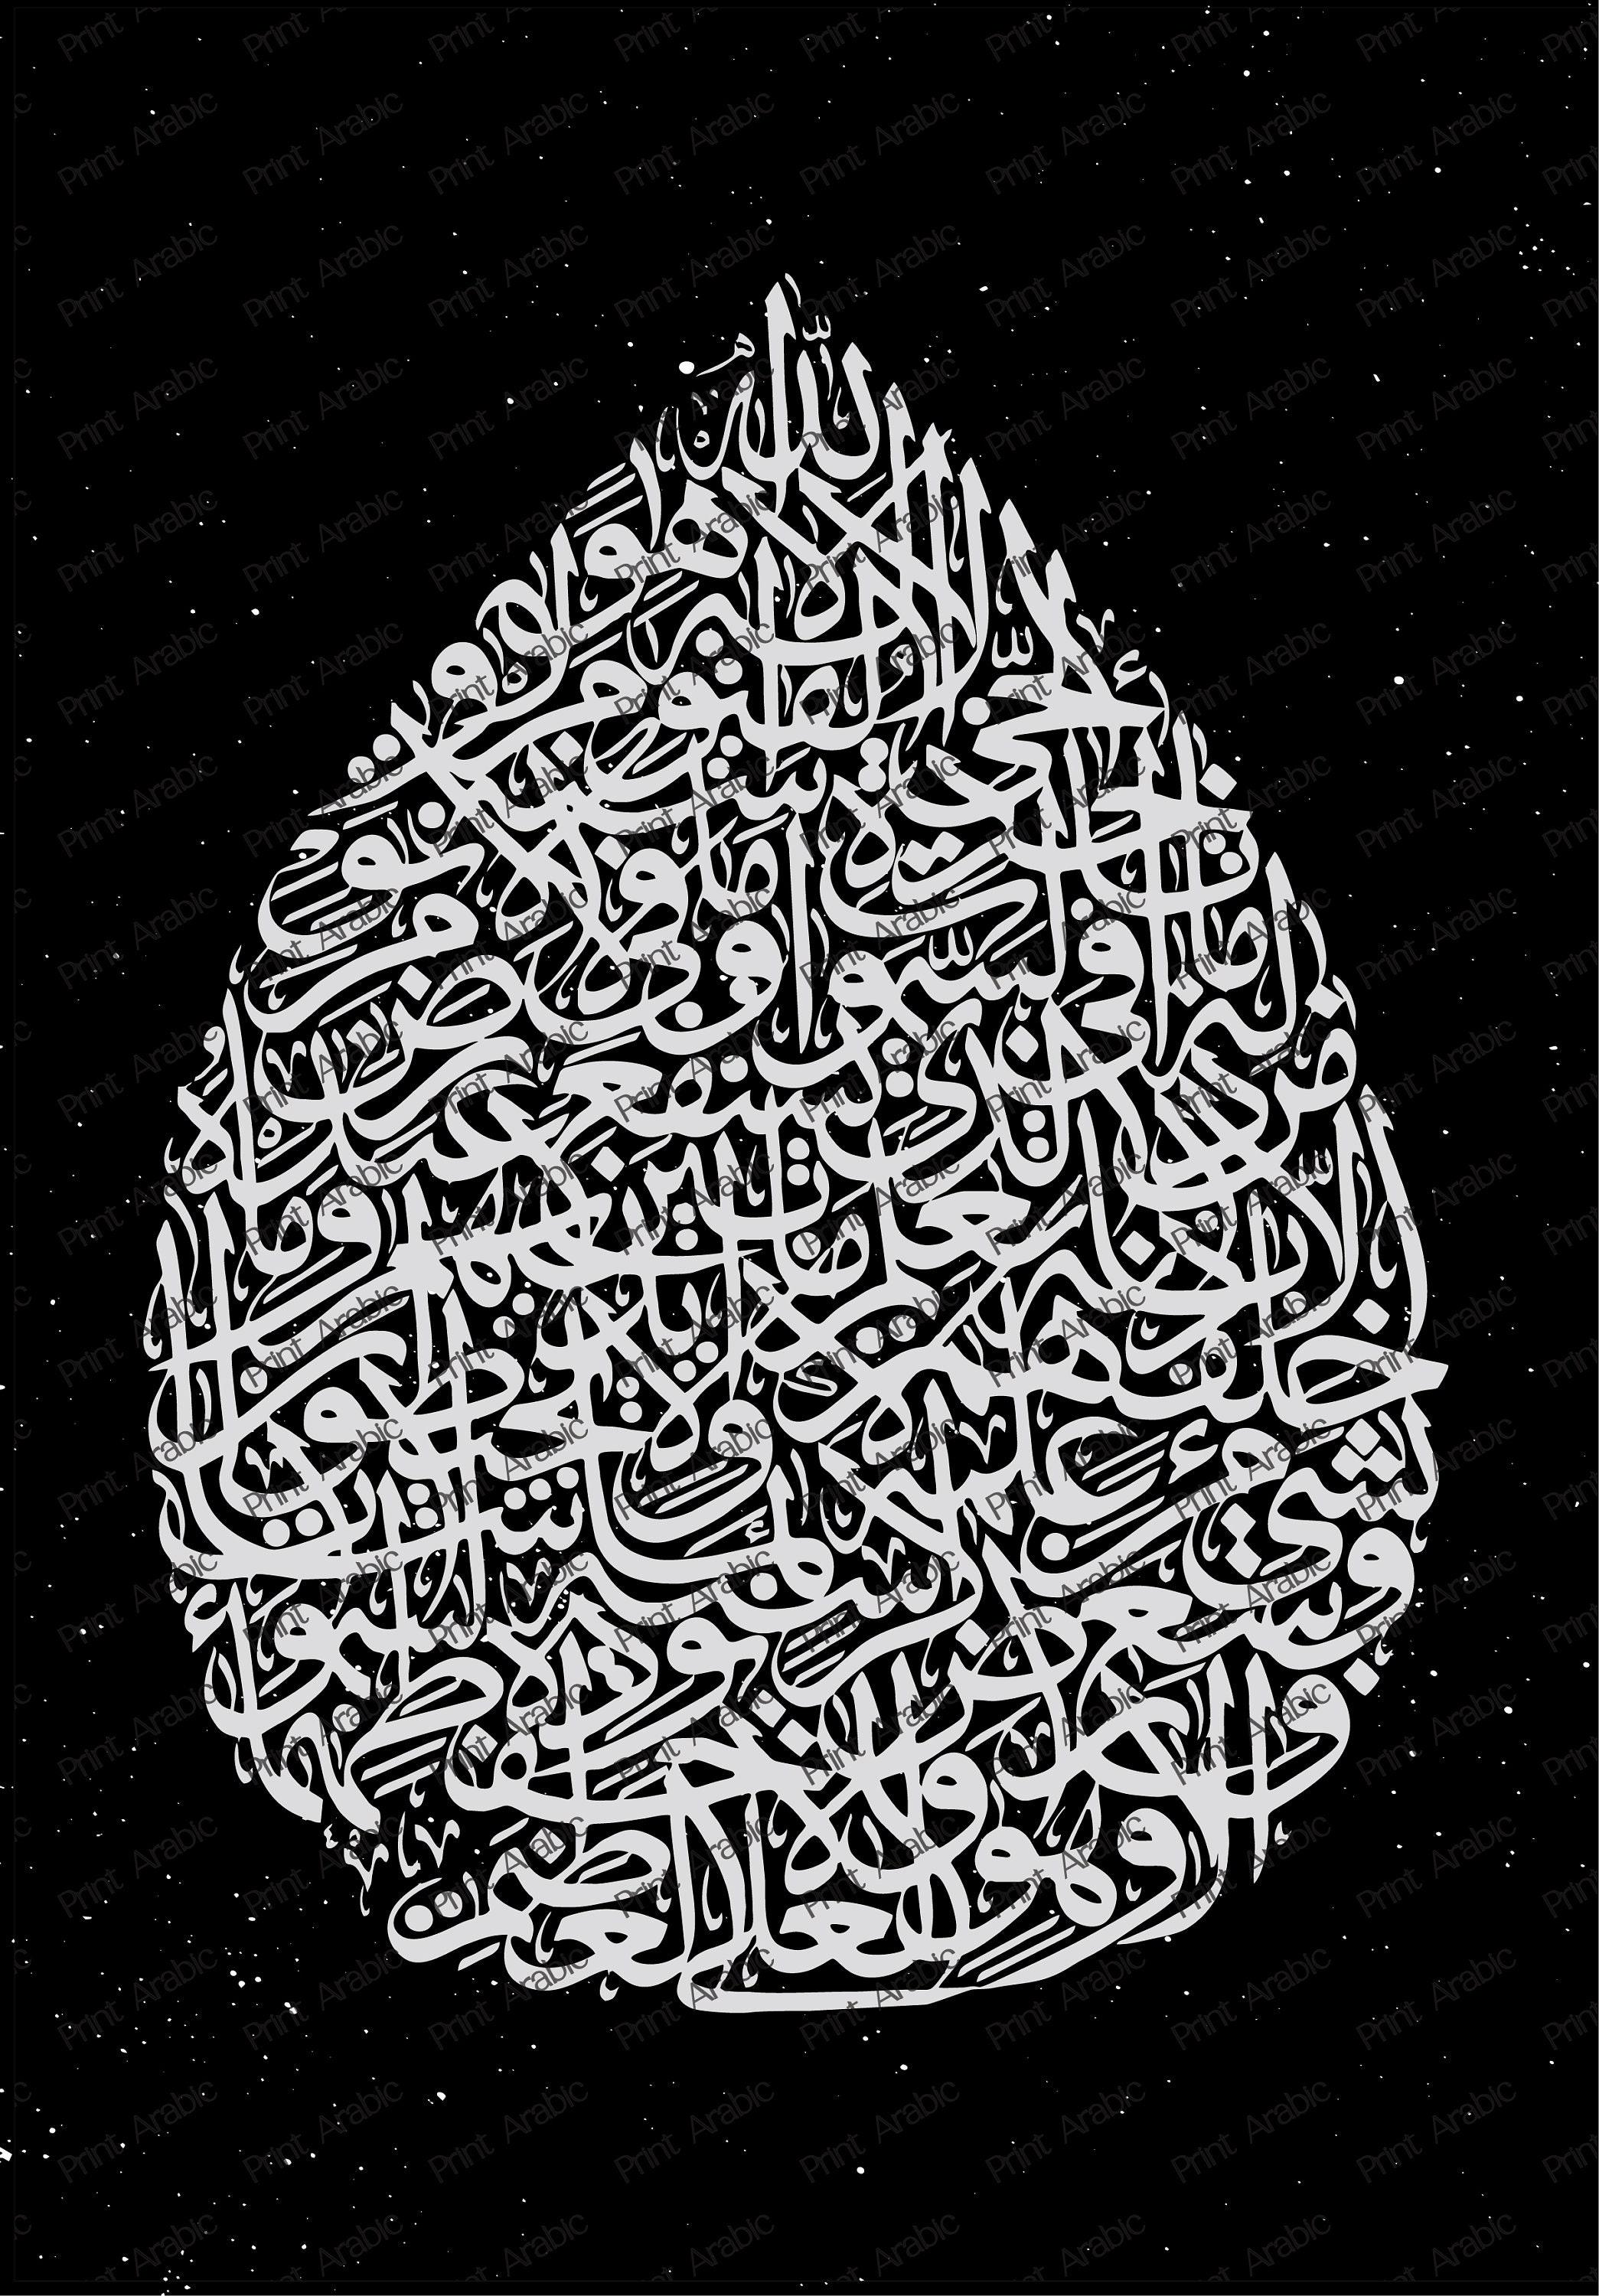 الله
لا إله إلا هو
الحي القيوم
لا تأخذه سنة ولا نوم
له ما في السموات وما في الأرض
من ذا الذي يشفع عنده
إلا بإذنه يعلم ما بين أيديهم وما
خلفهم ولا يحيطون
بشيء من علمه إلا بما شاء
وسع كرسيه السموات
والأرض ولا يئوده حفظهما
وهو العلي العظيم
Print Arabic